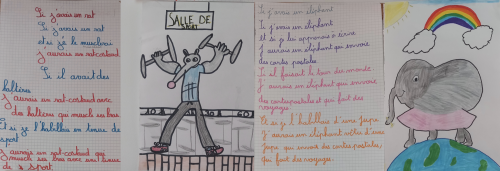 Si j'avais un rat
Si j'avais un rat
et si je le musclais
J'aurais un rat-costaud
Si il avait des
haltères
J'aurais un rat-costaud avec
des haltères qui muscle ses bras
Et si je l'habillais en tenue de
sport
J'aurais un rat-costaud qui
muscle ses bras avec sa tenue
de sport
SALLE DE
SPORT
Si j'avais un éléphant
Si j'avais un éléphant
Et si je lui apprenais à écrire
J'aurais un éléphant qui envoie
des cartes postales.
Si il faisait le tour du monde
J'aurais un éléphant qui envoie
des cartes postales et qui fait des
voyages.
Et si je l'habillais d'une jupe
J'aurais un éléphant vêtu d'une
jupe qui envoie des cartes postales,
qui fait des voyages.